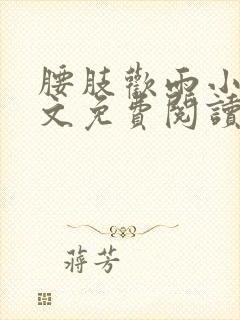 腰肢歡雨小
文免費閱讀
蔣芳